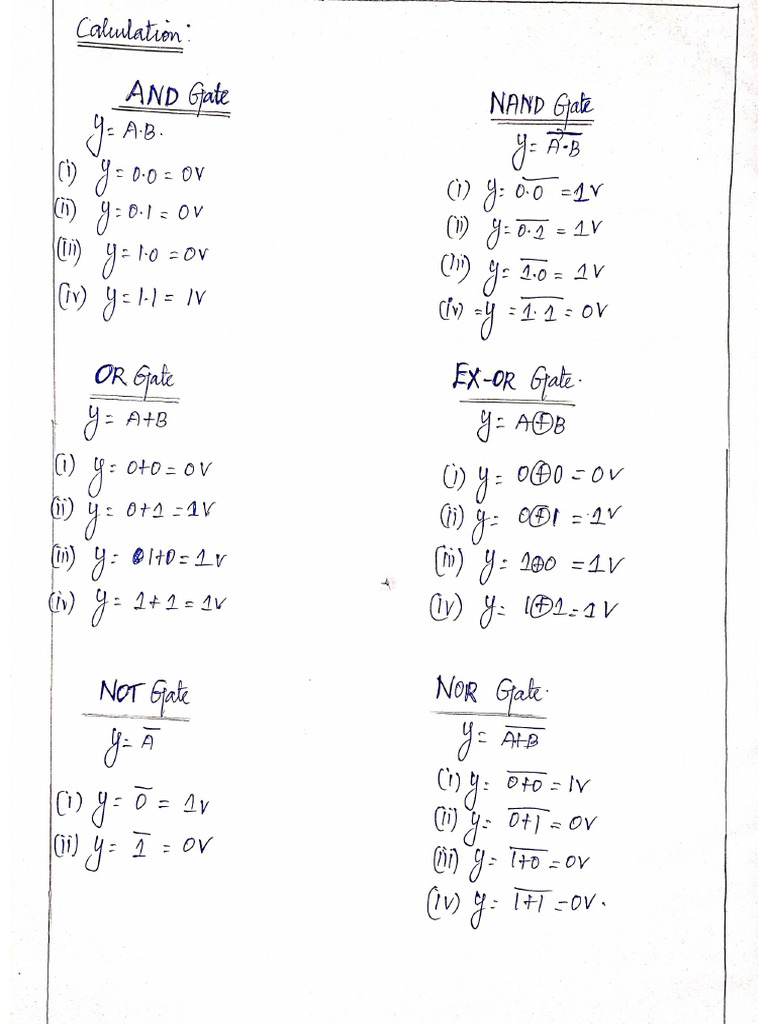 Calculation:
AND Gate
y = A·B.
(i) y = 0.0 = 0V
(ii) y = 0.1 = 0V
(iii) y = 1.0 = 0V
(iv) y = 1.1 = 1V
NAND Gate
y = \overline{A·B}
(i) y = \overline{0.0} = 1V
(ii) y = \overline{0.1} = 1V
(iii) y = \overline{1.0} = 1V
(iv) = y = \overline{1.1} = 0V
OR Gate
y = A+B
(i) y = 0+0 = 0V
(ii) y = 0+1 = 1V
(iii) y = 1+0 = 1V
(iv) y = 1+1 = 1V
EX-OR Gate.
y = A⊕B
(i) y = 0⊕0 = 0V
(ii) y = 0⊕1 = 1V
(iii) y = 1⊕0 = 1V
(iv) y = 1⊕1 = 1V
NOT Gate
y = \overline{A}
(i) y = \overline{0} = 1V
(ii) y = \overline{1} = 0V
NOR Gate.
y = \overline{A+B}
(i) y = \overline{0+0} = 1V
(ii) y = \overline{0+1} = 0V
(iii) y = \overline{1+0} = 0V
(iv) y = \overline{1+1} = 0V.